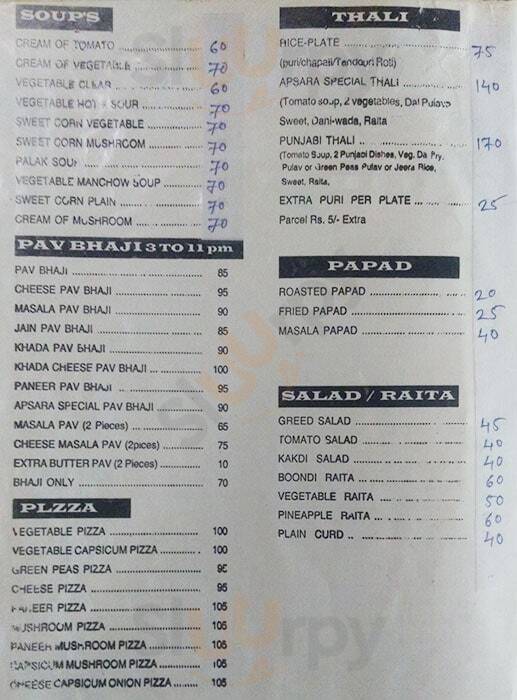 SOUP'S
CREAM OF TOMATO 60
CREAM OF VEGETABLE 70
VEGETABLE CLEAR 60
VEGETABLE HOT & SOUR 70
SWEET CORN VEGETABLE 70
SWEET CORN MUSHROOM 70
PALAK SOUP 70
VEGETABLE MANCHOW SOUP 70
SWEET CORN PLAIN 70
CREAM OF MUSHROOM 70
PAV BHAJI 3 TO 11 pm
PAV BHAJI 85
CHEESE PAV BHAJI 95
MASALA PAV BHAJI 90
JAIN PAV BHAJI 85
KHADA PAV BHAJI 90
KHADA CHEESE PAV BHAJI 100
PANEER PAV BHAJI 95
APSARA SPECIAL PAV BHAJI 90
MASALA PAV (2 Pieces) 65
CHEESE MASALA PAV (2pices) 75
EXTRA BUTTER PAV (2 Pieces) 10
BHAJI ONLY 70
PLZZA
VEGETABLE PIZZA 100
VEGETABLE CAPSICUM PIZZA 100
GREEN PEAS PIZZA 95
CHEESE PIZZA 95
PANEER PIZZA 105
MUSHROOM PIZZA 105
PANEER MUSHROOM PIZZA 105
CAPSICUM MUSHROOM PIZZA 105
CHEESE CAPSICUM ONION PIZZA 105
THALI
RICE-PLATE 75
(puri/chapati/Tandouri Roti)
APSARA SPECIAL THALI 140
(Tomato soup, 2 vegetables, Dal Pulave
Sweet, Dahi-wada, Raita
PUNJABI THALI 170
(Tomato Soup, 2 Punjabi Dishes, Veg. Da Fry.
Pulav or Green Peas Pulav or Jeera Rice,
Sweet, Raita,
EXTRA PURI PER PLATE 25
Parcel Rs. 5/- Extra
PAPAD
ROASTED PAPAD 20
FRIED PAPAD 25
MASALA PAPAD 40
SALAD / RAITA
GREED SALAD 45
TOMATO SALAD 40
KAKDI SALAD 40
BOONDI RAITA 60
VEGETABLE RAITA 50
PINEAPPLE RAITA 60
PLAIN CURD 40